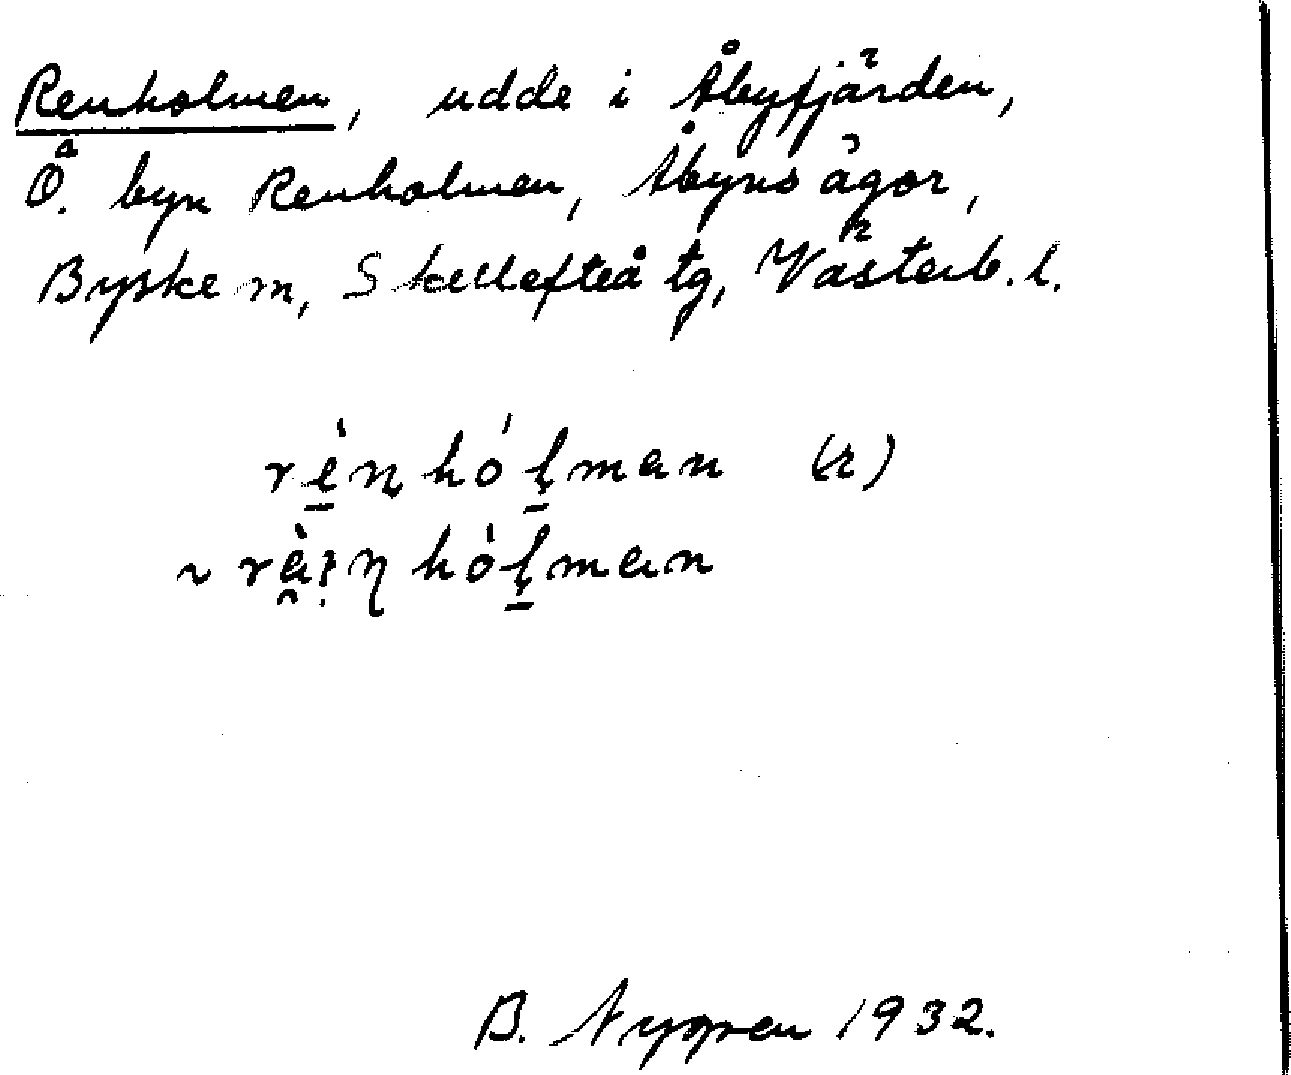 Renholmen, udde i Åbyfjärden,
Ö. byn Renholmen, Åbyns ägor,
Byske sn, Skellefteå tg, Västerb. l.
rè̱n hó ḻman (r)
~ hóḻman
B. Nygren 1932.